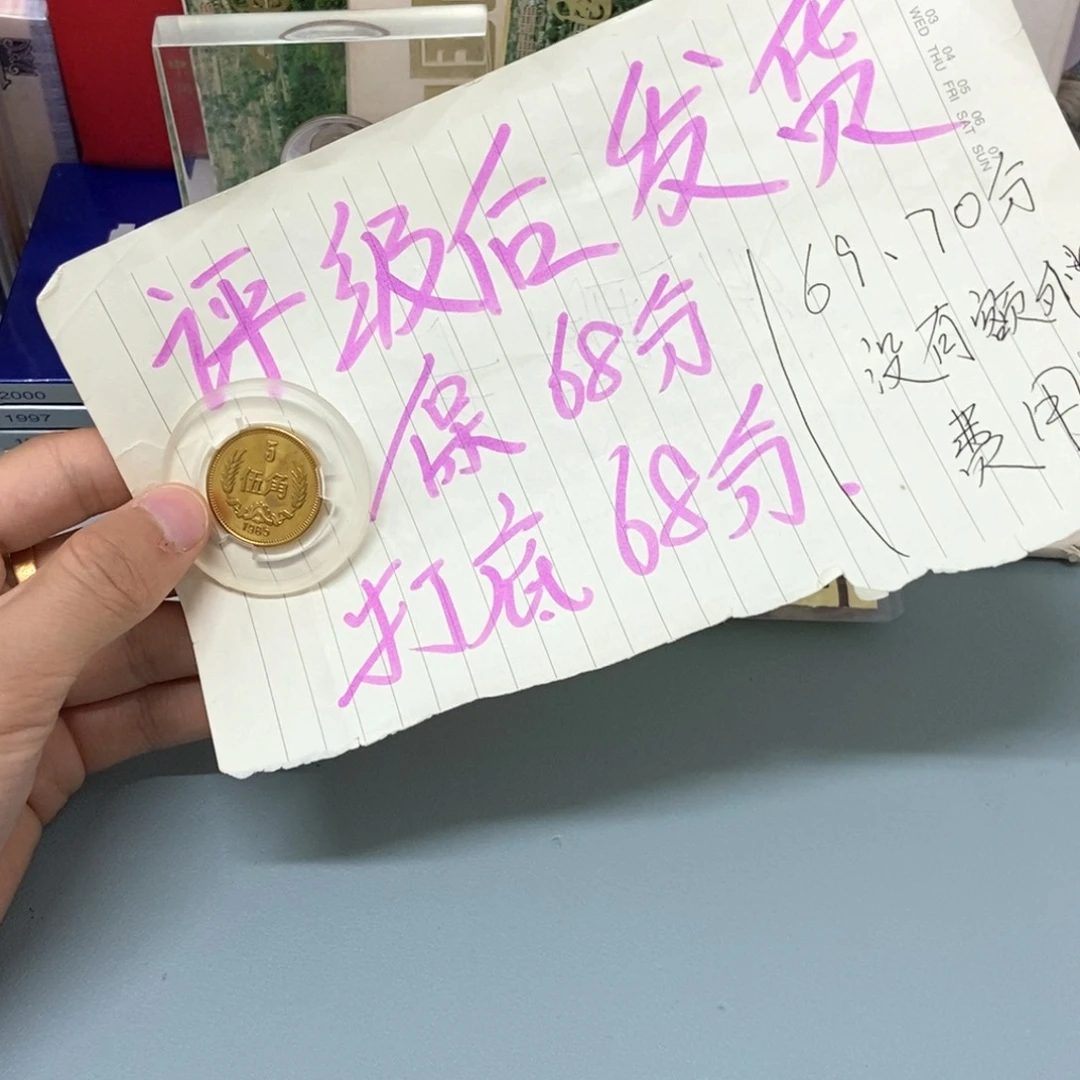 评级后发货
保68分
打底68分
69、70分
没有额外
费用
03 04 05 06 07
WED THU FRI SAT SUN
5
伍角
1985
2000
1997